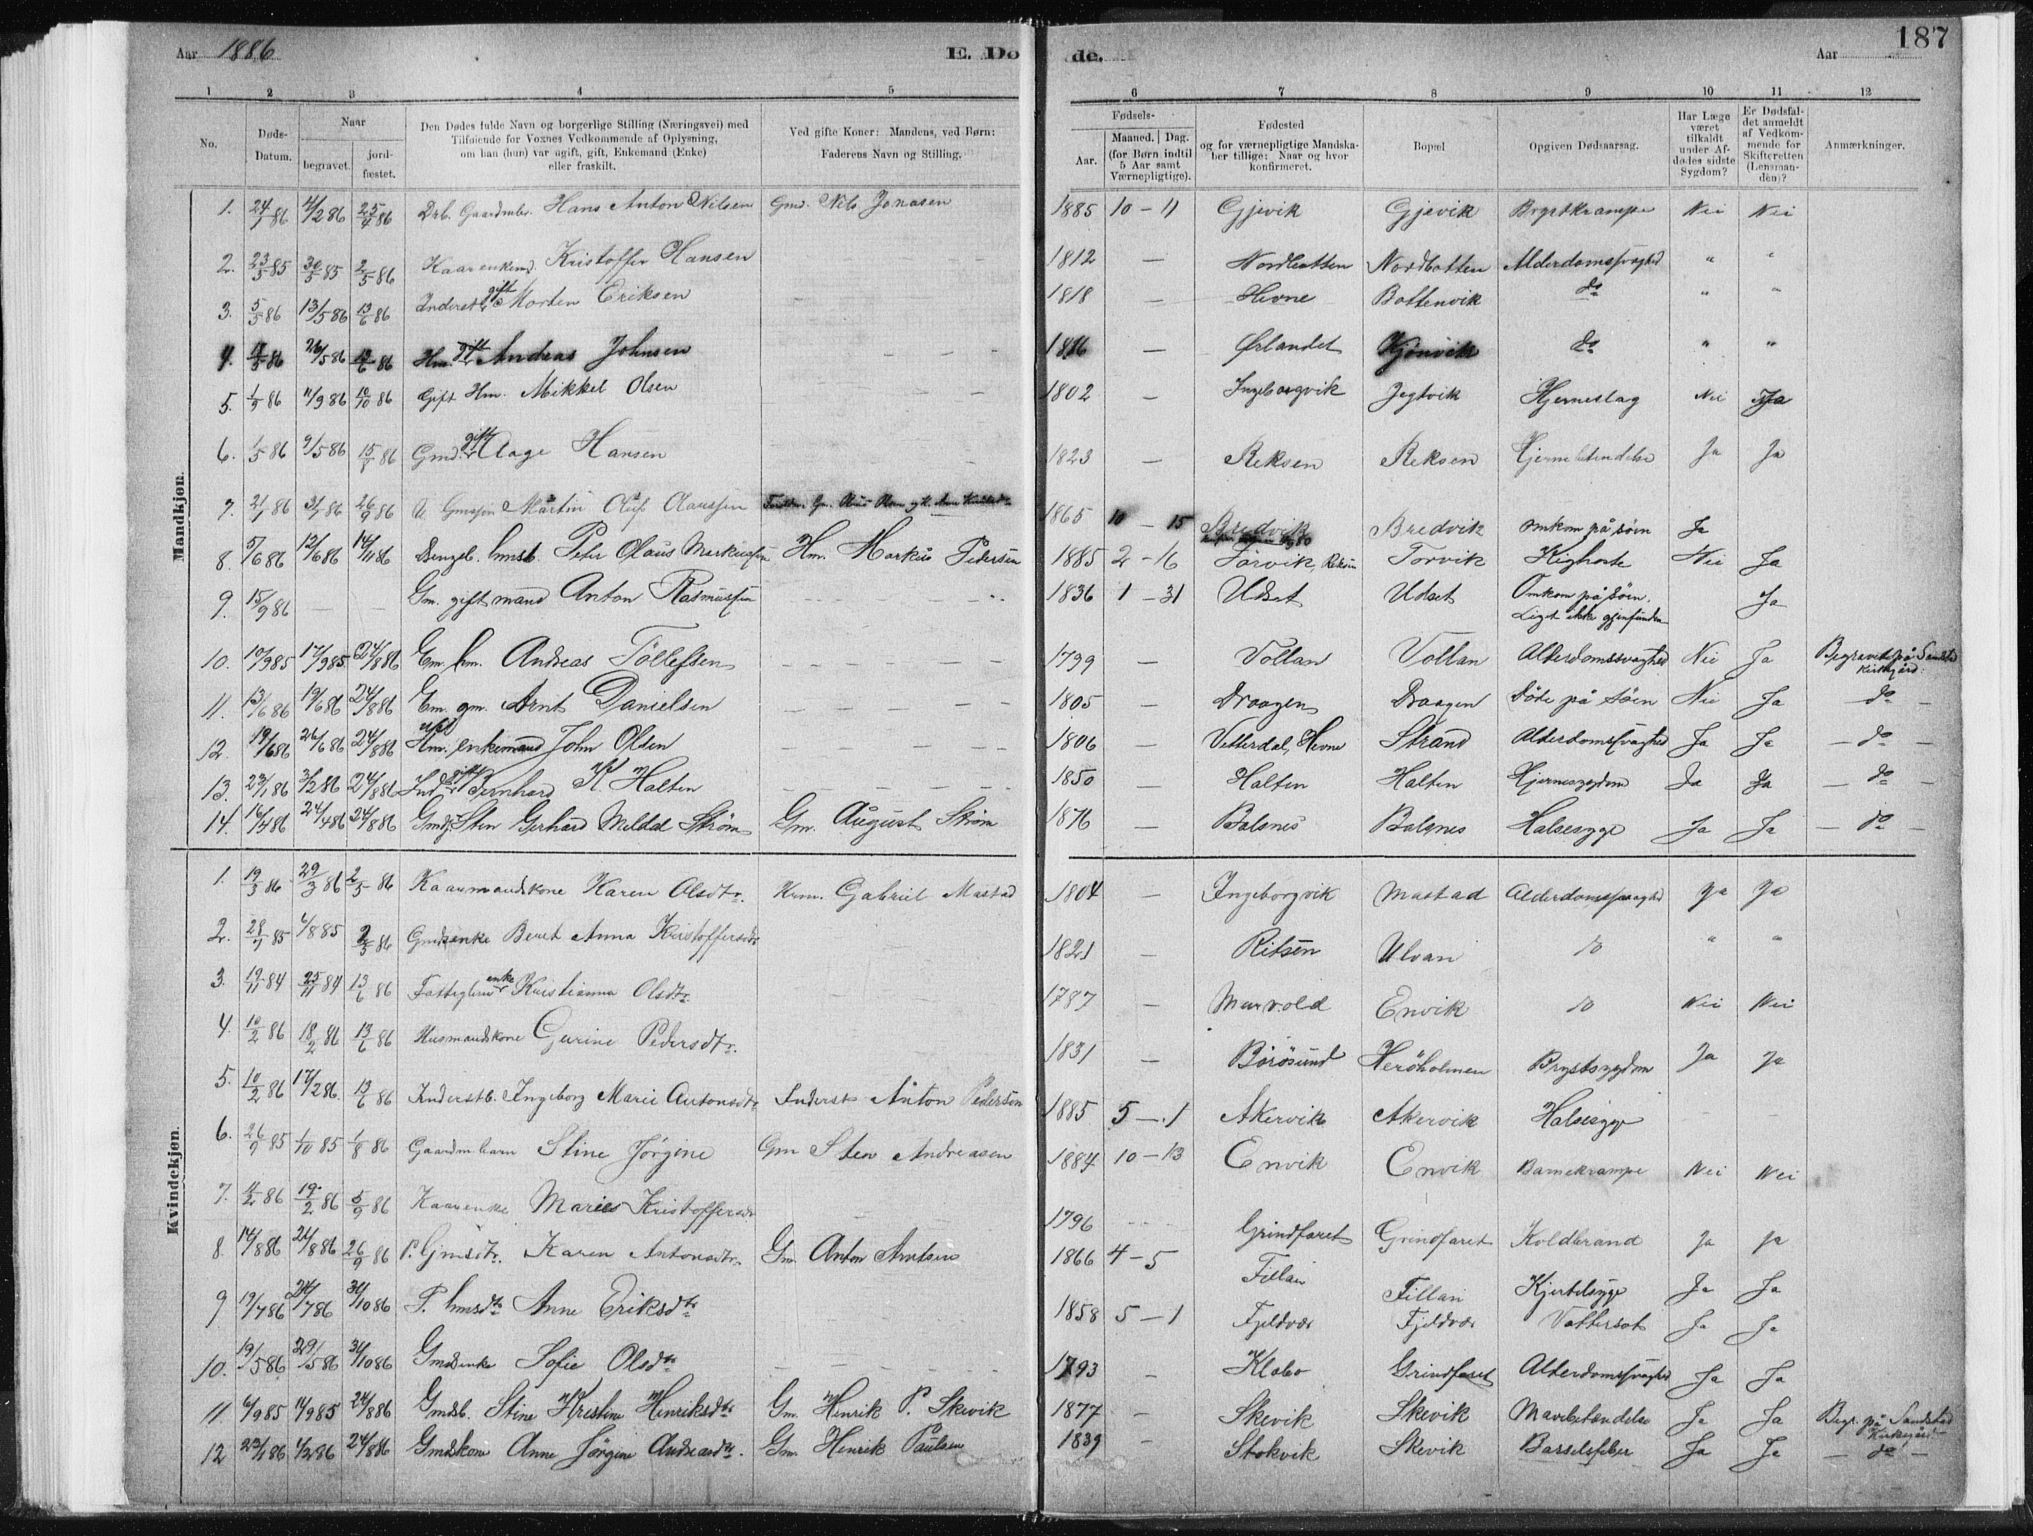 Aar 1886
E. Dø
de.
Aar
187
1 2 3 4 5
6 7 8 9 10 11 12
No.
Døds-Datum.
Naar
begravet.
jord-fæstet.
Den Dødes fulde Navn og borgerlige Stilling (Næringsvei) med
Tilføiende for Voxnes Vedkommende af Oplysning,
om han (hun) var ugift, gift, Enkemand (Enke)
eller fraskilt.
Ved gifte Koner: Mandens, ved Børn:
Faderens Navn og Stilling.
Fødsels-
Aar.
Maaned. Dag.
(for Børn indtil
5 Aar samt
Værnepligtige).
Fødested
og for værnepligtige Mandska-
ber tillige: Naar og hvor
konfirmeret.
Bopæl
Opgiven Dødsaarsag.
Har Læge
været
tilkaldt
under Af-
dødes sidste
Sygdom?
Er Dødsfal-
det anmeldt
af Vedkom-
mende for
Skifteretten
(Lensman-
den)?
Anmærkninger.
Mandkjøn.
1. 4/2 86 Hans Anton Nilsen Gmd. Nils Jonasen 1885 10 - 11 Gjevik Gjevik Brystkrampe Nei Nei
2. 23/5 85 30/5 85 2/5 86 Kaarenkemd. Kristoffer Hansen 1812 — Nordbotten Nordbotten Alderdomssvaghed " "
3. 5/5 86 13/5 86 13/6 86 Inderst gift Morten Eriksen 1818 — Hevne Bottenvik do " "
4. 26/5 86 Hm. gift Andreas Johnsen 1816 — Ørlandet Kjønsvik do " "
5. 1/9 86 11/9 86 10/10 86 Gift Hm. Mikkel Olsen 1802 — Ingeborgvik Jegtvik Hjerneslag Nei Ja
6. 1/5 86 9/5 86 15/8 86 Gmd. gift Aage Hansen 1823 — Reksen Reksen Hjernebetendelse Ja Ja
7. 21/1 86 31/1 86 26/9 86 U. Gmssøn Martin Oluf Olaussen 1865 10 - 15 Bredvik Bredvik omkom på søen Ja
8. 5/6 86 12/6 86 14/11 86 Peter Olaus Markussen Hm. Markus Pedersen 1885 2 - 16 Torvik, Reksen Torvik Kighoste Nei Ja
9. 15/9 86 — — Gm. gift mand Anton Rasmussen 1836 1 - 31 Udset Udset Omkom på søen.
Liget ikke gjenfunden Ja
10. 10/9 85 17/9 85 24/8 86 Em. hm. Andreas Tøllefsen 1799 — Vollan Vollan Alderdomssvaghed Nei Ja Begravet på Sandstad
Kirkegård
11. 13/6 86 19/6 86 24/8 86 Em. gm. Arnt Danielsen 1805 — Draagen Draagen Døde på søen Nei Ja — do —
12. 19/6 86 26/6 86 24/8 86 Hm. enkemand John Olsen 1806 — Vetterdal, Hevne Strand Alderdomssvaghed Ja Ja — do —
13. 23/1 86 3/2 86 24/8 86 Ind. gift Bernhard K Halten 1850 — Halten Halten Hjernesygdom Ja Ja — do —
14. 16/4 86 24/4 86 24/8 86 Sten Gerhard Meldal Strøm Gm. August Strøm 1876 — Balsnes Balsnes Halsesyge Ja Ja — do —
Kvindekjøn.
1. 19/3 86 29/3 86 2/5 86 Kaarmandskone Karen Olsdtr. Krm. Gabriel Mastad 1804 — Ingeborgvik Mastad Alderdomssvaghed Ja Ja
2. 28/7 85 4/8 85 2/5 86 Gmdsenke Beret Anna Kristoffersdtr 1821 — Ritsen Ulvan do " "
3. 19/11 84 25/11 84 13/6 86 Fattiglem enke Kristianna Olsdtr. 1787 — Murvold Envik do Nei Nei
4. 10/2 86 18/2 86 13/6 86 Husmandskone Gurine Pedersdtr. 1831 — Børøsund Herøholmen Brystsygdom Ja Ja
5. 10/2 86 17/2 86 13/6 86 Inderstb. Ingeborg Marie Antonsdtr Inderst Anton Pedersen 1885 5 - 1 Akervik Akervik Halsesyge
6. 26/9 85 1/10 85 1/8 86 Gaardm barn Stine Jørgine Gm Sten Andreasen 1884 10 - 13 Envik Envik Barnekrampe Nei Nei
7. 4/2 86 19/2 86 5/9 86 Kaarenke Marie Kristoffersdtr 1796 Grindfaret Grindfaret Koldbrand Ja Ja
8. 14/8 86 21/8 86 26/9 86 P. Gmsdtr. Karen Antonsdtr. Gm. Anton Arntsen 1866 4 - 5 Fillan Fillan Kjertelsyge Ja Ja
9 19/7 86 24/7 86 31/10 86 P. hmsdtr Anne Eriksdtr 1858 5 - 1 Fjeldvær Fjeldvær Vattersot Ja Ja
10. 19/5 86 29/5 86 31/10 86 Gmdsenke Sofie Olsdtr 1793 — Klabo Grindfaret Alderdomssvaghed Ja Ja
11. 6/9 85 14/9 85 24/8 86 Gmdsb. Stine Kristine Henriksdtr Gm. Henrik P. Skevik 1877 — Skevik Skevik Mavebetændelse Ja Ja Begr. på Sandstad
Kirkegård
12 23/1 86 4/2 86 24/8 86 Gmdskone Anne Jørgine Andreasdtr. Gm. Henrik Paulsen 1839 — Stokvik Skevik Barselfeber Ja Ja — do —